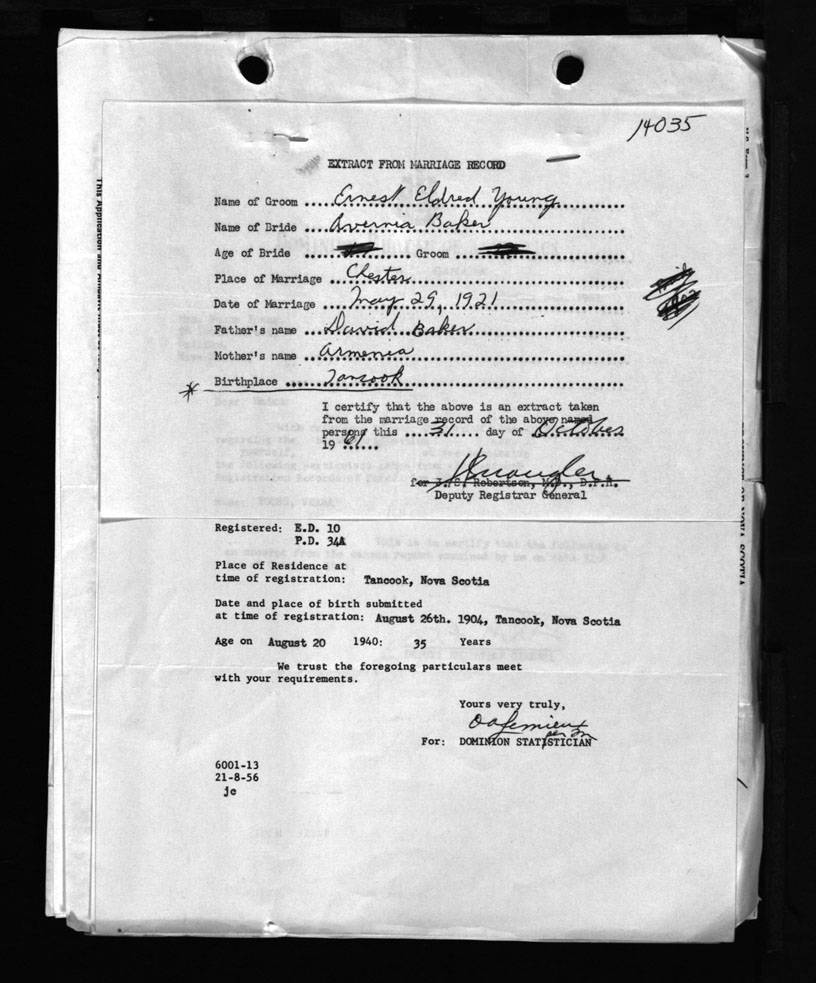 14035
EXTRACT FROM MARRIAGE RECORD
Name of Groom .... Ernest Eldred Young
Name of Bride .... Avernia Baker
Age of Bride .... Groom ....
Place of Marriage .. Chester
Date of Marriage ... May 29, 1921
Father's name ... David Baker
Mother's name .. Armenia
* Birthplace .... Tancook
I certify that the above is an extract taken
from the marriage record of the above named
persons this .... 31 .... day of October
1961
for J.S. Robertson, M.D., D.P.H.
Deputy Registrar General
Registered: E.D. 10
P.D. 34A
Place of Residence at
time of registration: Tancook, Nova Scotia
Date and place of birth submitted
at time of registration: August 26th. 1904, Tancook, Nova Scotia
Age on August 20 1940: 35 Years
We trust the foregoing particulars meet
with your requirements.
Yours very truly,
For: DOMINION STATISTICIAN
6001-13
21-8-56
jc